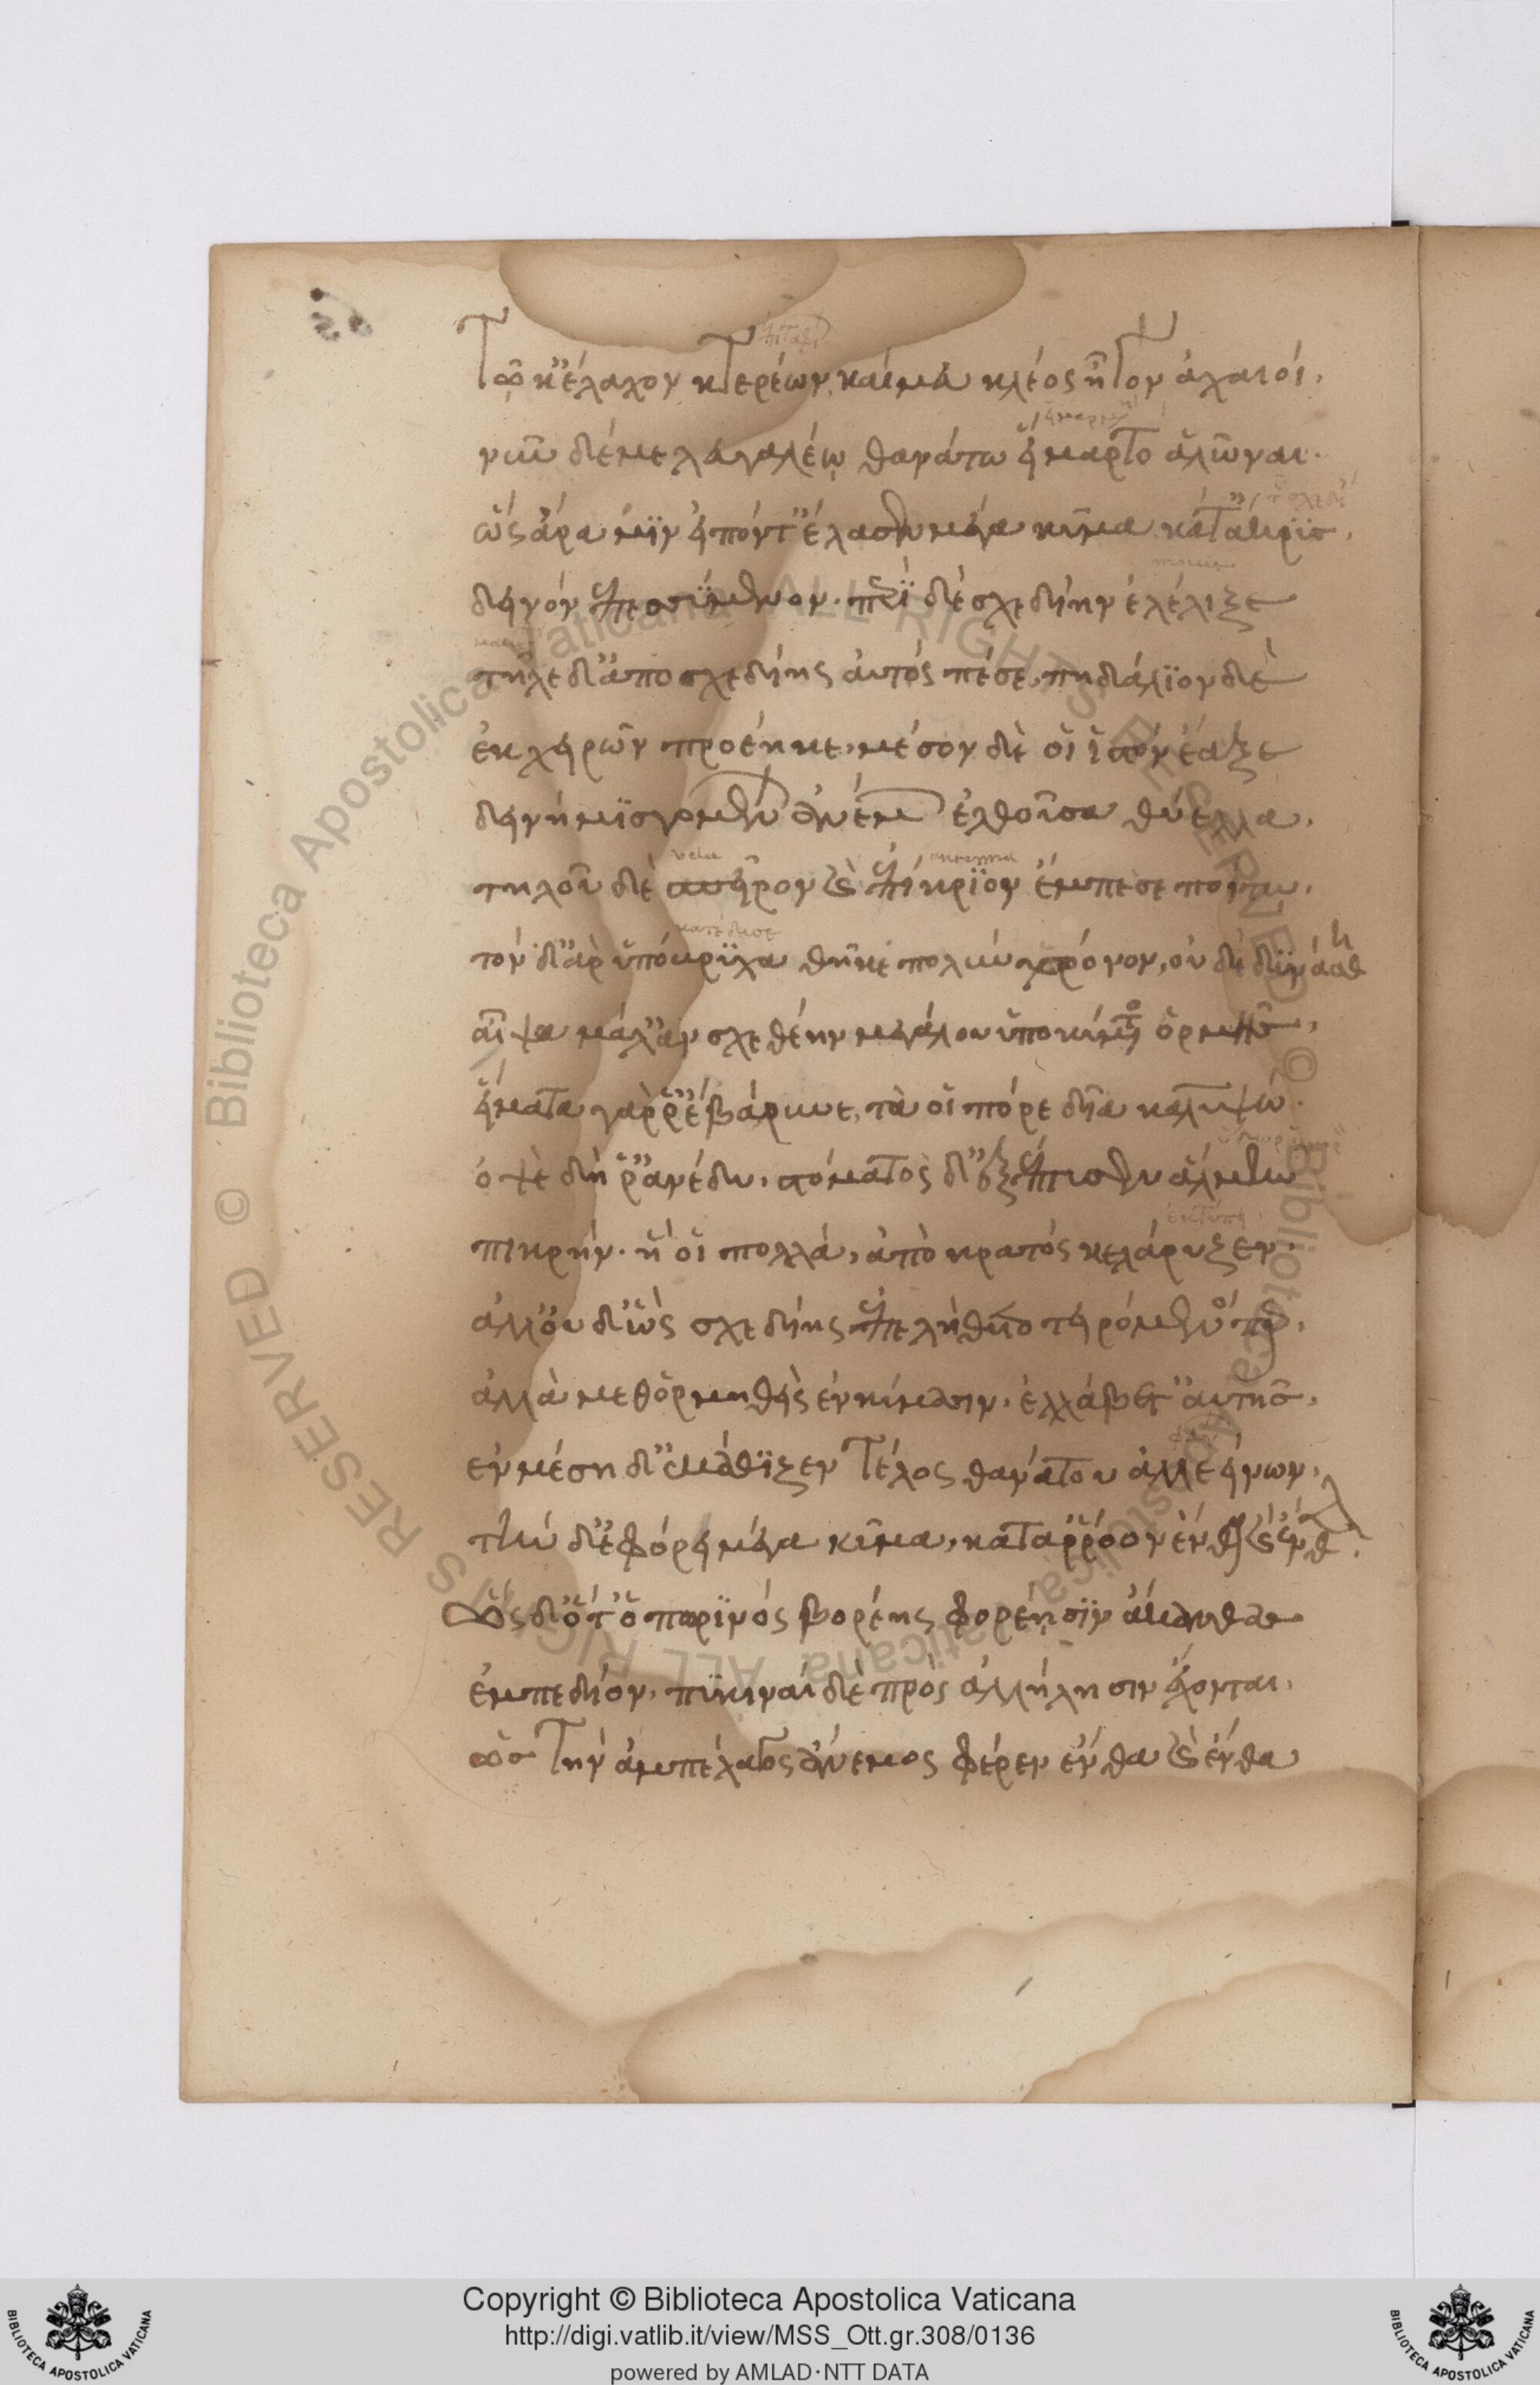 τῶ κ' ἔλαχον κτερέων, καί μευ κλέος ἦγον ἀχαιοί.
νῦν δέ με λευγαλέῳ θανάτω εἵμαρτο ἁλῶναι.
ὣς ἄρα μϊν εἰπόντ' ἔλασεν μέγα κῦμα κατάκρϊσ.
δεινὸν ἐπεσσύμενον. περὶ δὲ σχεδίην ἐλέλιξε
τῆλε δ' ἀπο σχεδίης αὐτὸς πέσε, πηδάλϊον δὲ
ἐκ χειρῶν προέηκε, μέσον δὲ οἱ ἱστὸν ἔαξε
δεινὴ μϊσγομένων ἀνέμων ἐλθοῦσα θύελλα.
vela antenna
τηλοῦ δὲ σπεῖρον καὶ ἐπίκρϊον ἔμπεσε πόντω.
τὸν δ' ἄρ ὑπόβρϋχα θῆκε πολὺν χρόνον, οὐ δὲ δϋνάσθη
αἶψα μάλ' ἀνσχεθέειν μεγάλου ὑπο κύματος ὁρμῆς.
εἵματα γάρ ῥ' ἐβάρυνε, τά οἱ πόρε δῖα καλυψώ.
ὀψὲ δὴ ῥ' ἀνέδυ, στόματος δ' ἐξέπτυσεν ἅλμην
πικρήν. ἥ οἱ πολλὰ, ἀπὸ κρατὸς κελάρυζεν.
ἀλλ' οὐδ' ὧς σχεδίης ἐπελήθετο τειρόμενός περ.
ἀλλὰ μεθορμηθεὶς ἐν κύμασιν, ἐλλάβετ' αὐτῆς.
ἐν μέση δὲ κάθϊζεν τέλος θανάτου ἀλεείνων.
τὴν δ' ἐφόρει μέγα κῦμα, κατα ῥρόον ἔνθα καὶ ἔνθα.
Ὡς δ' ὅτ' ὀπωρϊνὸς βορέης φορέησϊν ἀκάνθας
ἐμπεδίον, πϋκιναὶ δὲ πρὸς ἀλλήλησιν ἔχονται.
ὣς τὴν ἀμπέλαγος ἄνεμος φέρεν ἔνθα καὶ ἔνθα
Copyright © Biblioteca Apostolica Vaticana
http://digi.vatlib.it/view/MSS_Ott.gr.308/0136
powered by AMLAD·NTT DATA